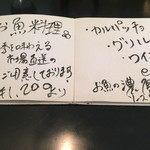 お魚料理
季を味わえる
市場直送の
ご用意しております
20
より
・カルパッチョ
・グリル
・ワイ
e
お魚の濃